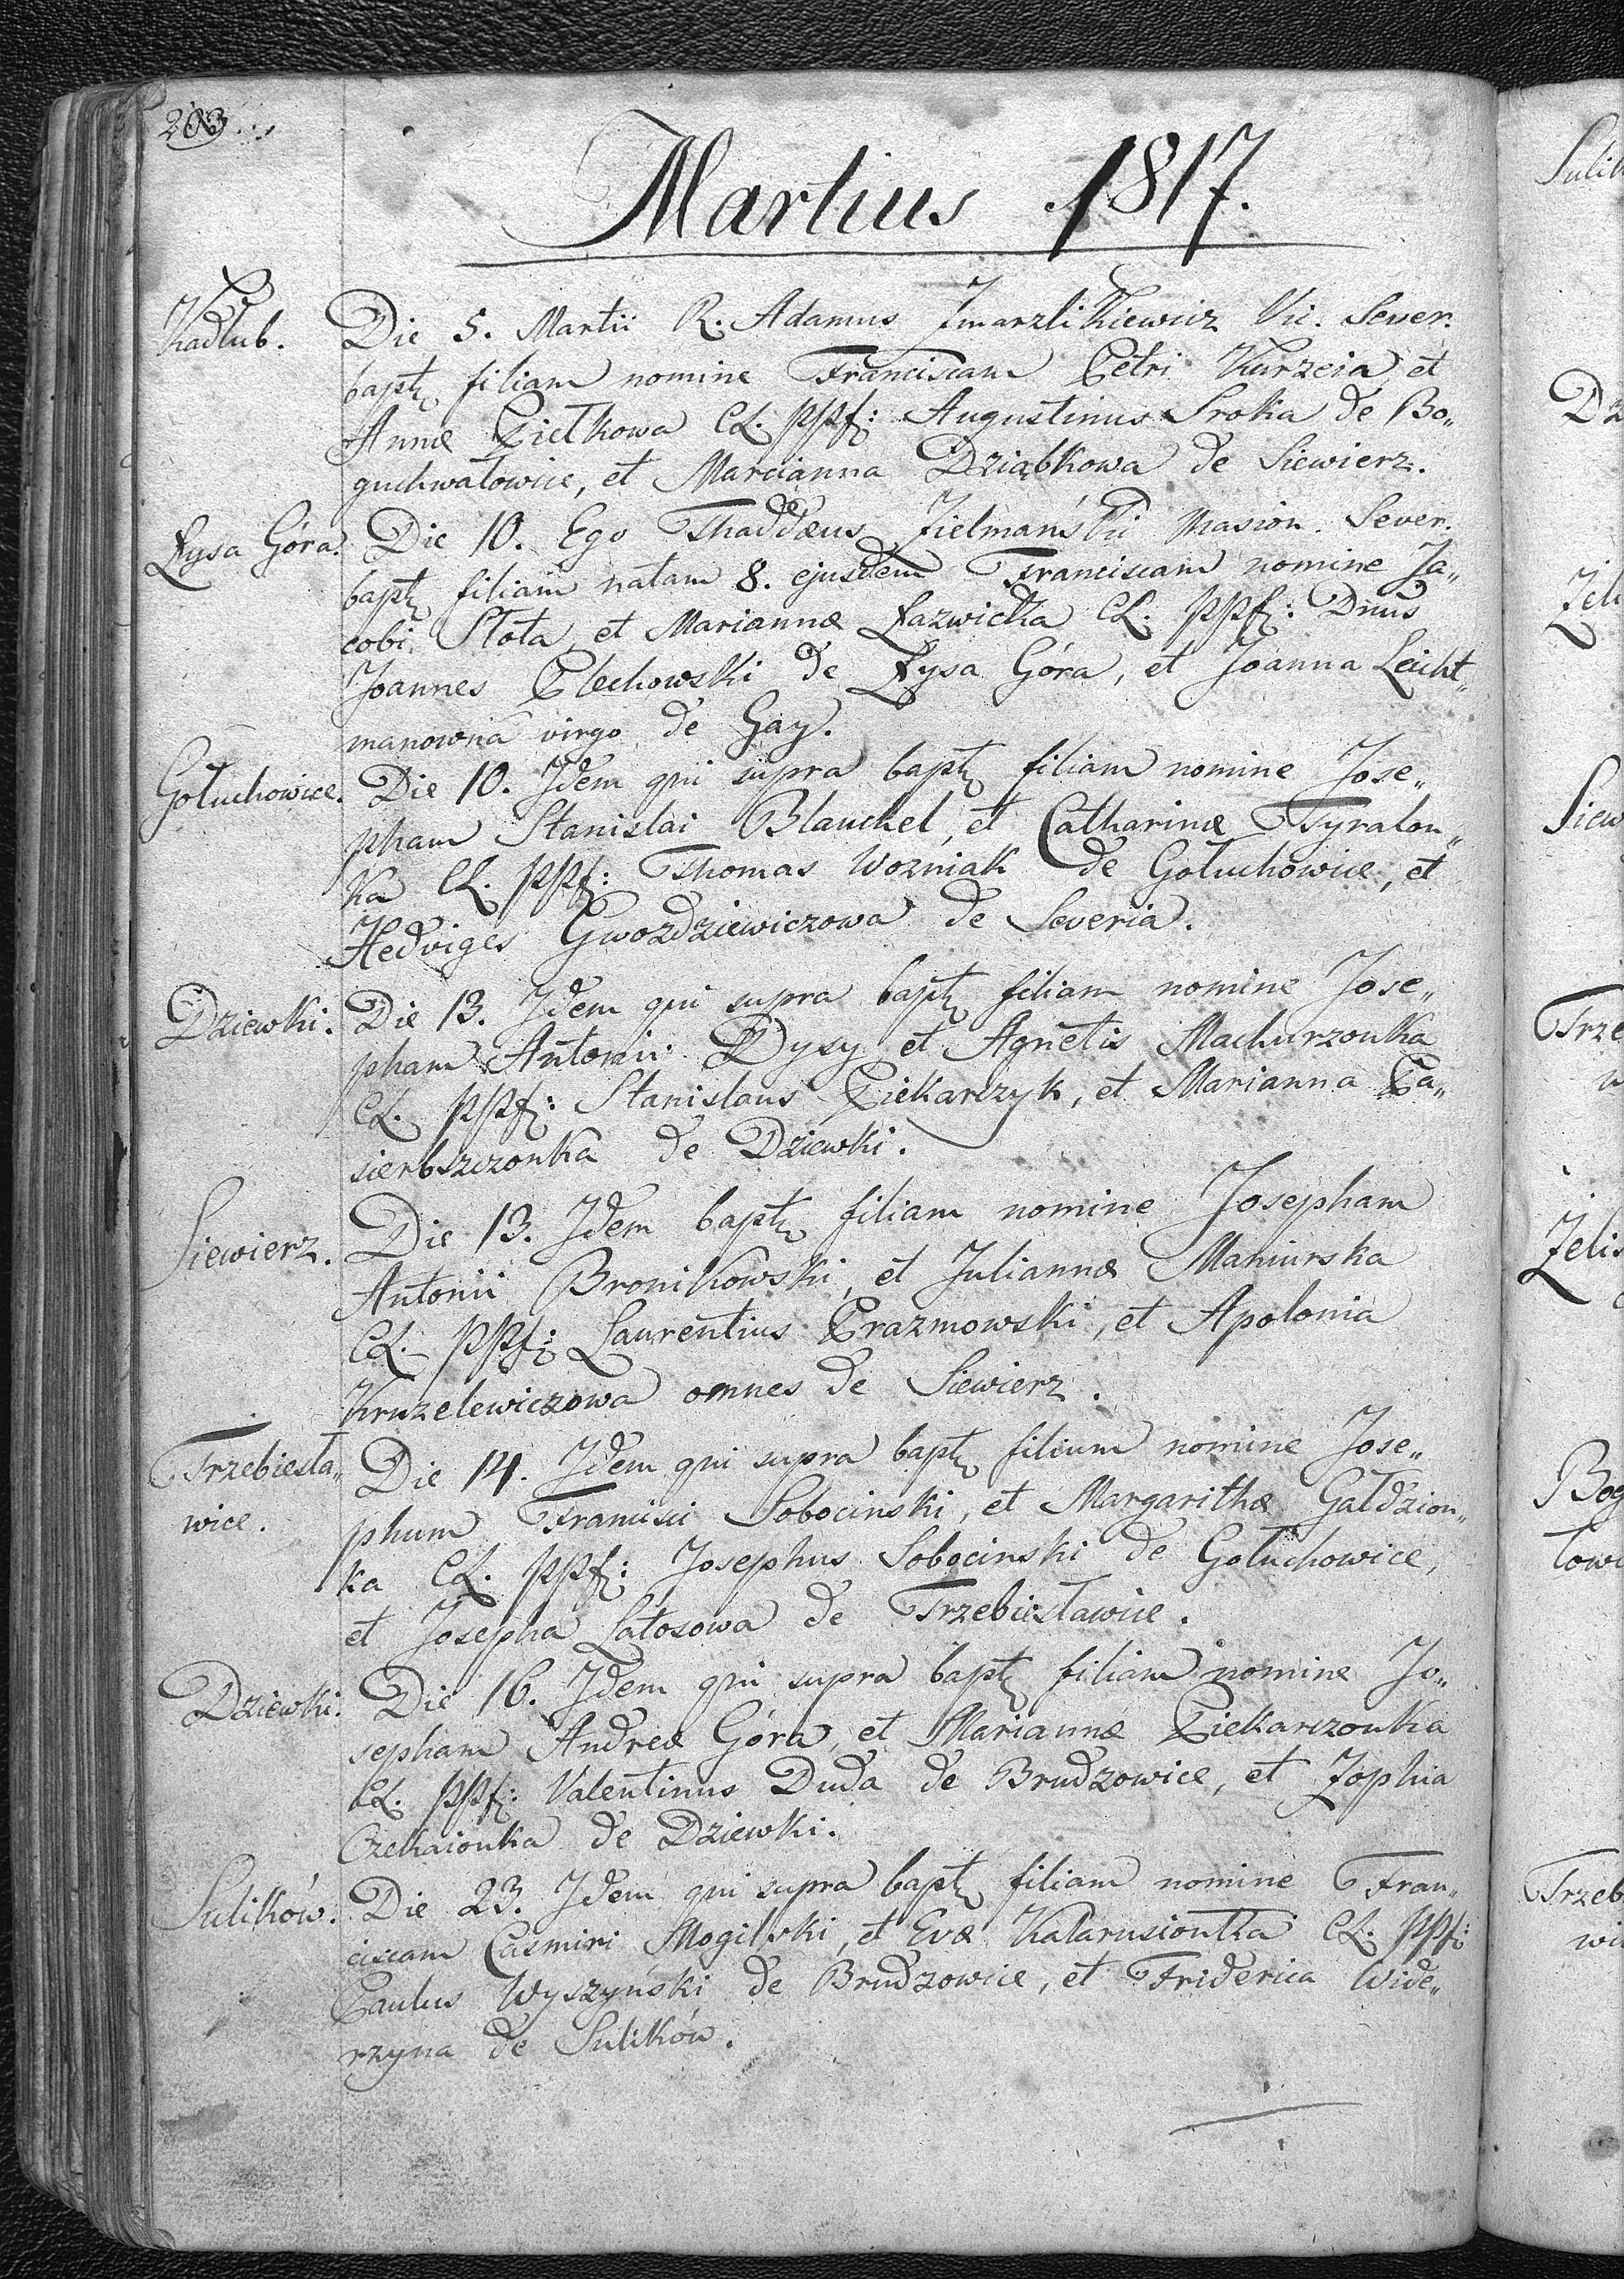 203
Martius 1817.
Kadłub.
Die 5. Martii R. Adamus Zmarzlikiewicz Vic. Sever.
bapt filiam nomine Franciscam Petri Kurzeia et
Annæ Pietkowa CL. ppf: Augustinus Sroka de Bo„
guchwałowice, et Marcianna Dziąbkowa de Siewierz.
Łysa Góra.
Die 10. Ego Thaddæus Zielmański Masion. Sever.
bapt filiam natam 8. ejusdem Franciscam nomine Ja„
cobi Stota et Mariannæ Łazwicka CL. ppf: Dnus
Joannes Plechowski de Łysa Góra, et Joanna Leicht„
manowna virgo de Gay.
Gołuchowice.
Die 10. Idem qui supra bapt filiam nomine Jose„
pham Stanislai Blauchel, et Catharinæ Tyralon„
ka CL. ppf: Thomas Wozniak de Gołuchowice, et
Hedviges Gwozdziewiczowa de Severia.
Dziewki.
Die 13. Idem qui supra bapt filiam nomine Jose„
pham Antonii Dysy et Agnetis Machurzonka
CL. ppf: Stanislaus Piekarczyk, et Marianna Pa„
sierbszczonka de Dziewki.
Siewierz.
Die 13. Idem bapt filiam nomine Josepham
Antonii Bronikowski, et Juliannæ Maniurska
CL. ppf: Laurentius Prazmowski, et Apolonia
Kruzelewiczowa omnes de Siewierz.
Trzebiesła„
wice.
Die 14. Idem qui supra bapt filium nomine Jose„
phum Francisci Sobocinski, et Margarithæ Gałdzion„
ka CL. ppf: Josephus Sobocinski de Gołuchowice,
et Josepha Łatosowa de Trzebiesławice.
Dziewki.
Die 16. Idem qui supra bapt filiam nomine Jo„
sepham Andreæ Góra, et Mariannæ Piekarczonka
CL. ppf: Valentinus Duda de Brudzowice, et Zophia
Czekaionka de Dziewki.
Sulików.
Die 23. Idem qui supra bapt filiam nomine Fran„
ciscam Casmiri Mogilski, et Evæ Katarusionka CL. ppf:
Paulus Wyszyński de Brudzowice, et Friderica Wide„
rzyna de Sulików.